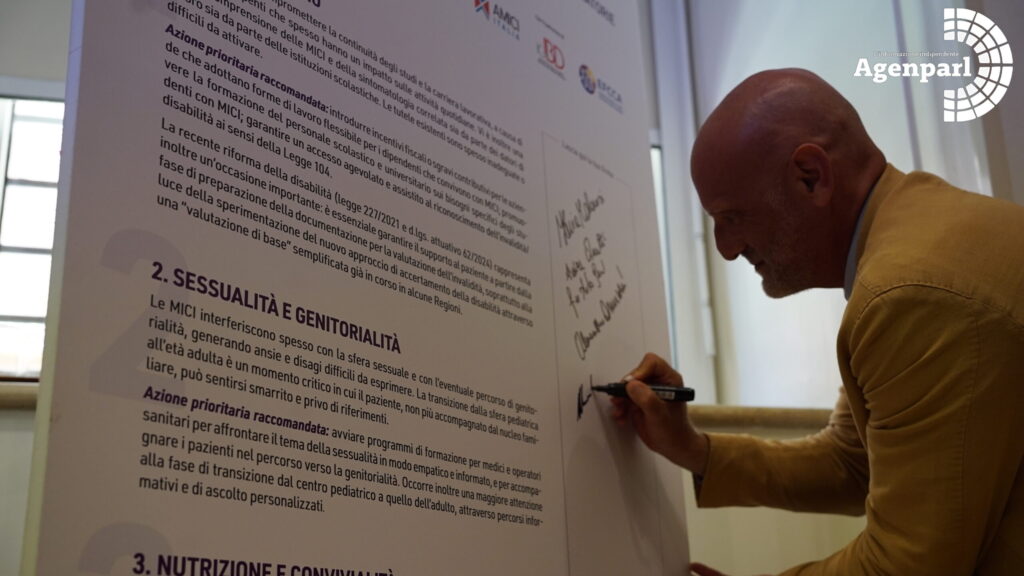 compromettere la continuità degli studi e la carriera lavorativa, a causa di
che spesso hanno un impatto sulle attività quotidiane. Vi è inoltre una
comprensione delle MICI e della sintomatologia correlata sia da parte dei datori di
lavoro sia da parte delle istituzioni scolastiche. Le tutele esistenti sono spesso inadeguate o
difficili da attivare.
Azione prioritaria raccomandata: introdurre incentivi fiscali o sgravi contributivi per le aziende
che adottano forme di lavoro flessibile per i dipendenti che convivono con MICI; promuovere
la formazione del personale scolastico e universitario sui bisogni specifici degli studenti
con MICI; garantire un accesso agevolato e assistito al riconoscimento dell'invalidità/
disabilità ai sensi della Legge 104.
La recente riforma della disabilità (legge 227/2021 e d.lgs. attuativo 62/2024) rappresenta
inoltre un'occasione importante: è essenziale garantire il supporto al paziente a partire dalla
fase di preparazione della documentazione per la valutazione dell'invalidità, soprattutto alla
luce della sperimentazione del nuovo approccio di accertamento della disabilità attraverso
una "valutazione di base" semplificata già in corso in alcune Regioni.
2
2. SESSUALITÀ E GENITORIALITÀ
Le MICI interferiscono spesso con la sfera sessuale e con l'eventuale percorso di genito-
rialità, generando ansie e disagi difficili da esprimere. La transizione dalla sfera pediatrica
all'età adulta è un momento critico in cui il paziente, non più accompagnato dal nucleo fami-
liare, può sentirsi smarrito e privo di riferimenti.
Azione prioritaria raccomandata: avviare programmi di formazione per medici e operatori
sanitari per affrontare il tema della sessualità in modo empatico e informato, e per accompa-
gnare i pazienti nel percorso verso la genitorialità. Occorre inoltre una maggiore attenzione
alla fase di transizione dal centro pediatrico a quello dell'adulto, attraverso percorsi infor-
mativi e di ascolto personalizzati.
3. NUTRIZIONE E CONVIVIALITÀ
AMICI
ITALIA
EFCCA
Agenparl